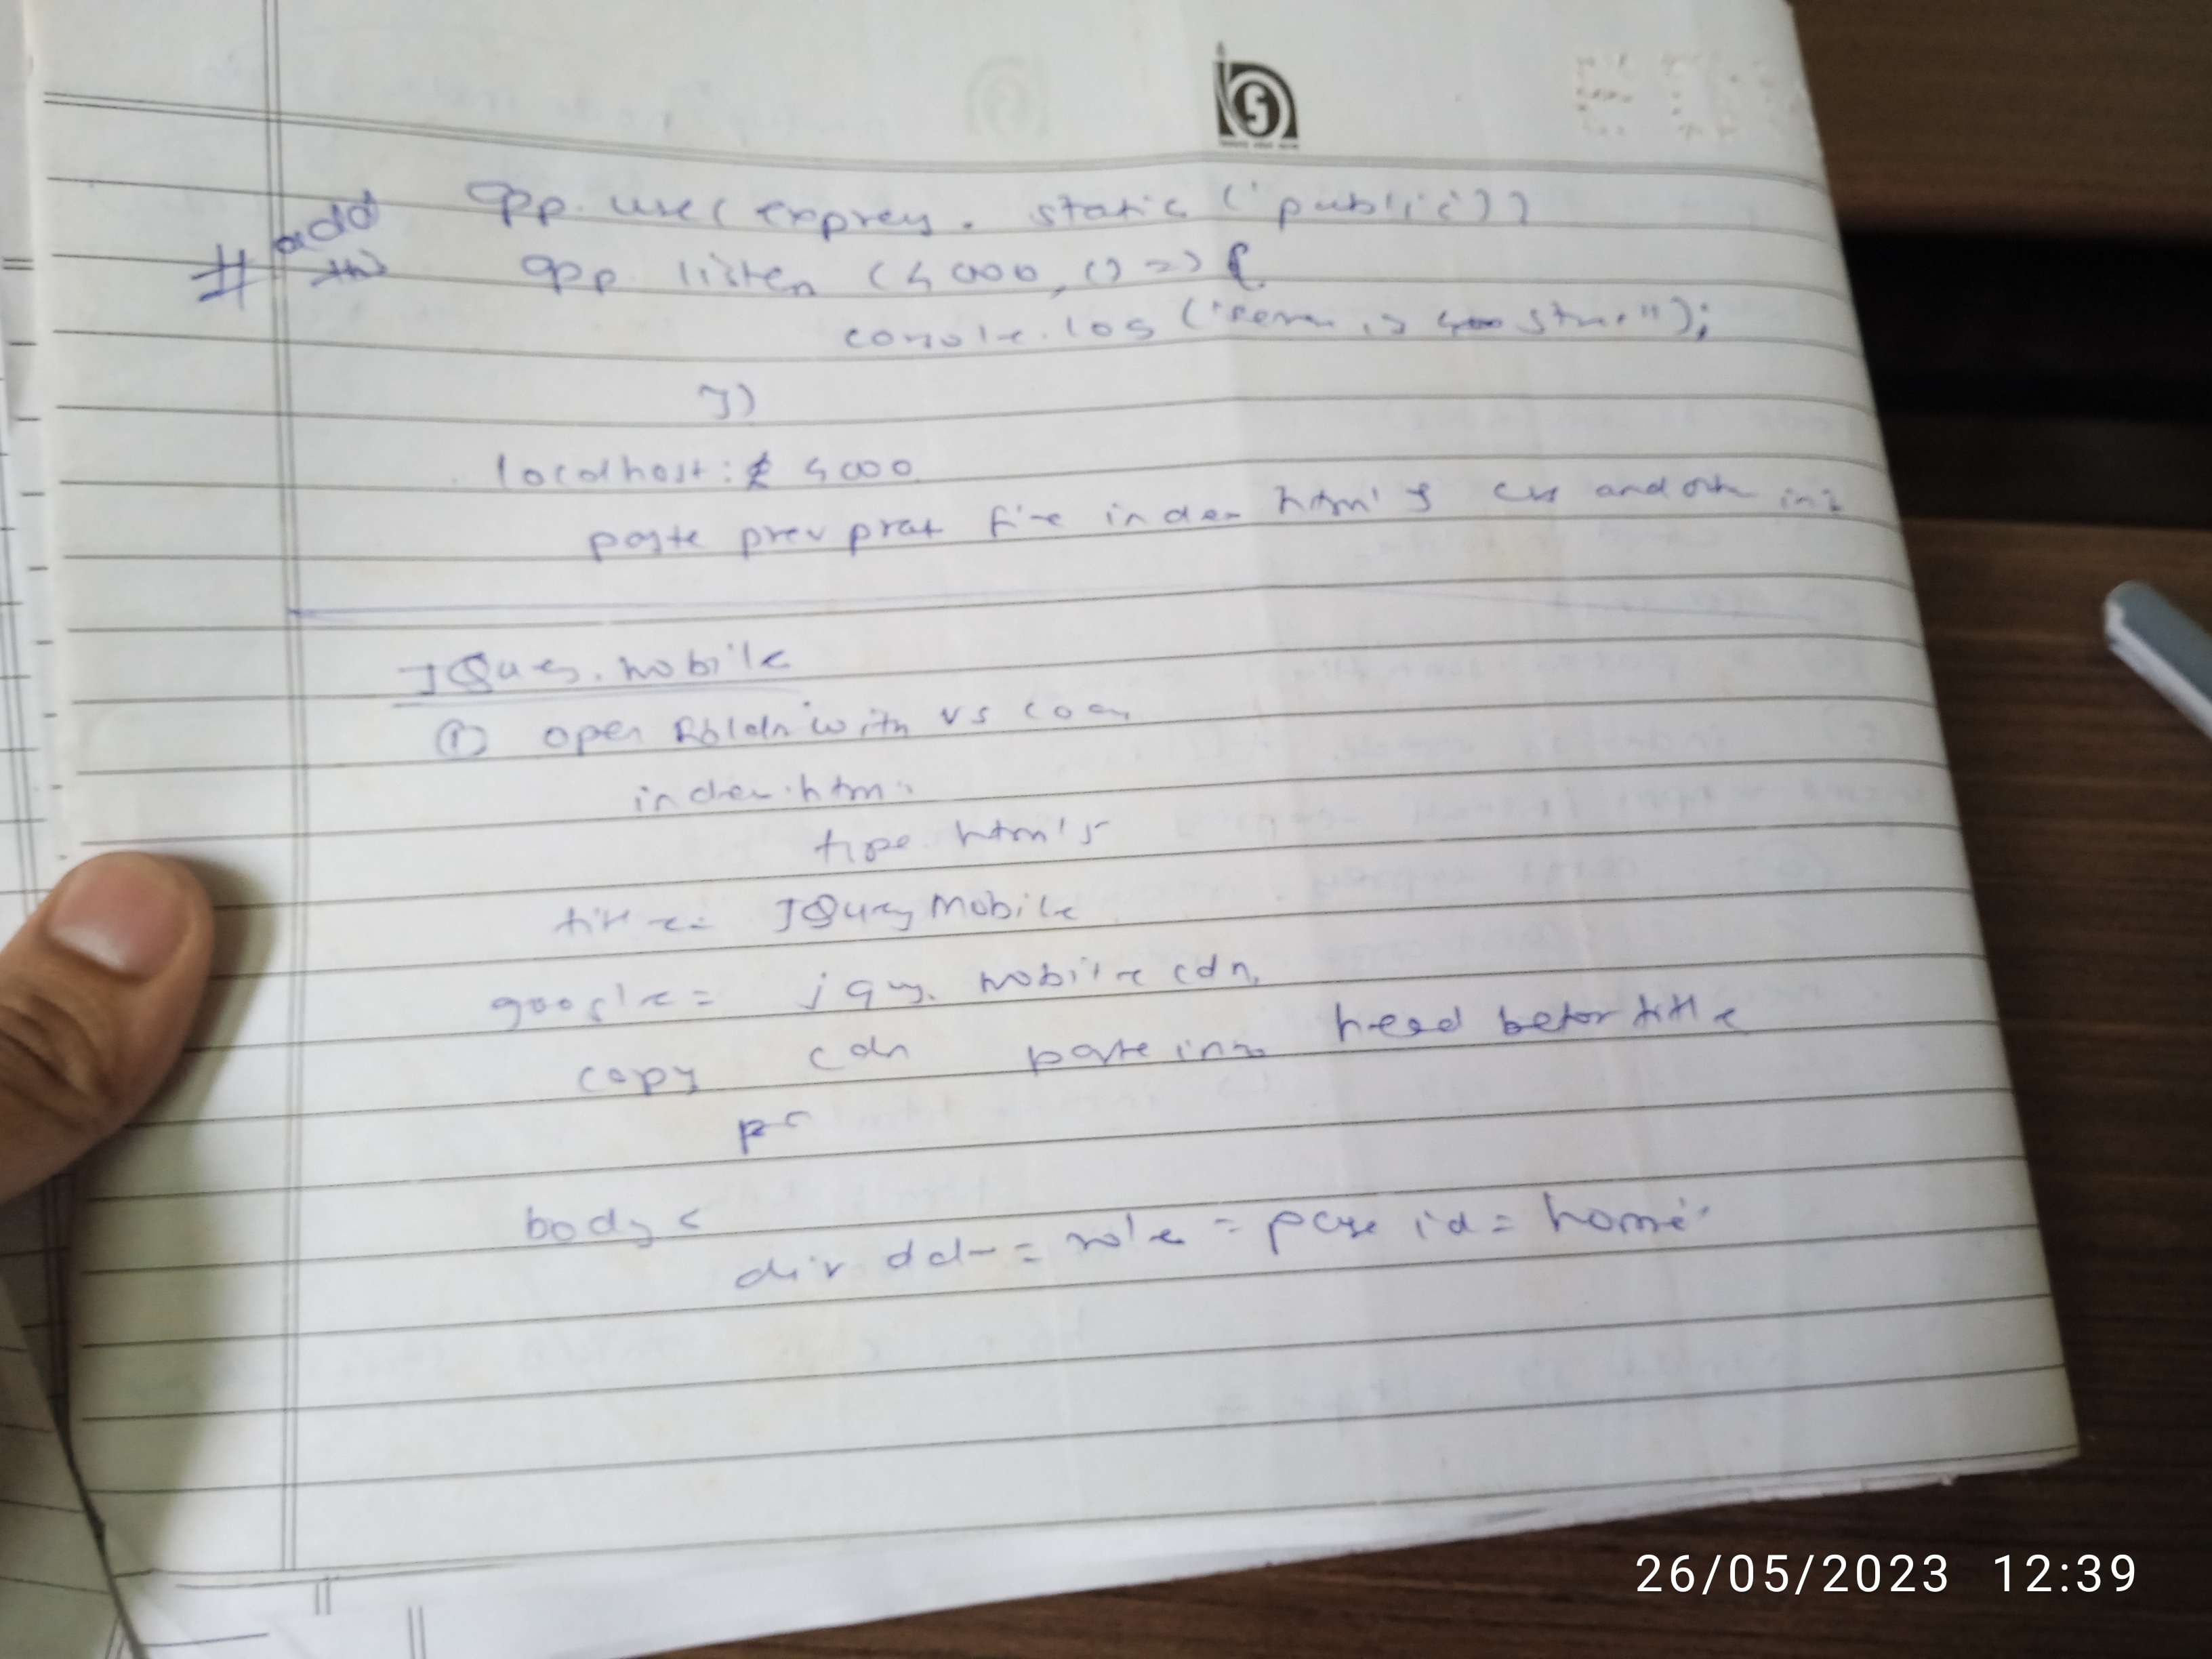 add app. use( express. static ('public'))
# app listen (4000, () => {
console.log ("server is star");
})
localhost: 4000
paste prev prat file index html's css and othe in it
JQuey. mobile
① open folder with vs code
index.html
type html:5
title = JQuery Mobile
google = jqy. mobile cdn
copy cdn paste in head befor title
body <
div data = role = page id = home
26/05/2023 12:39